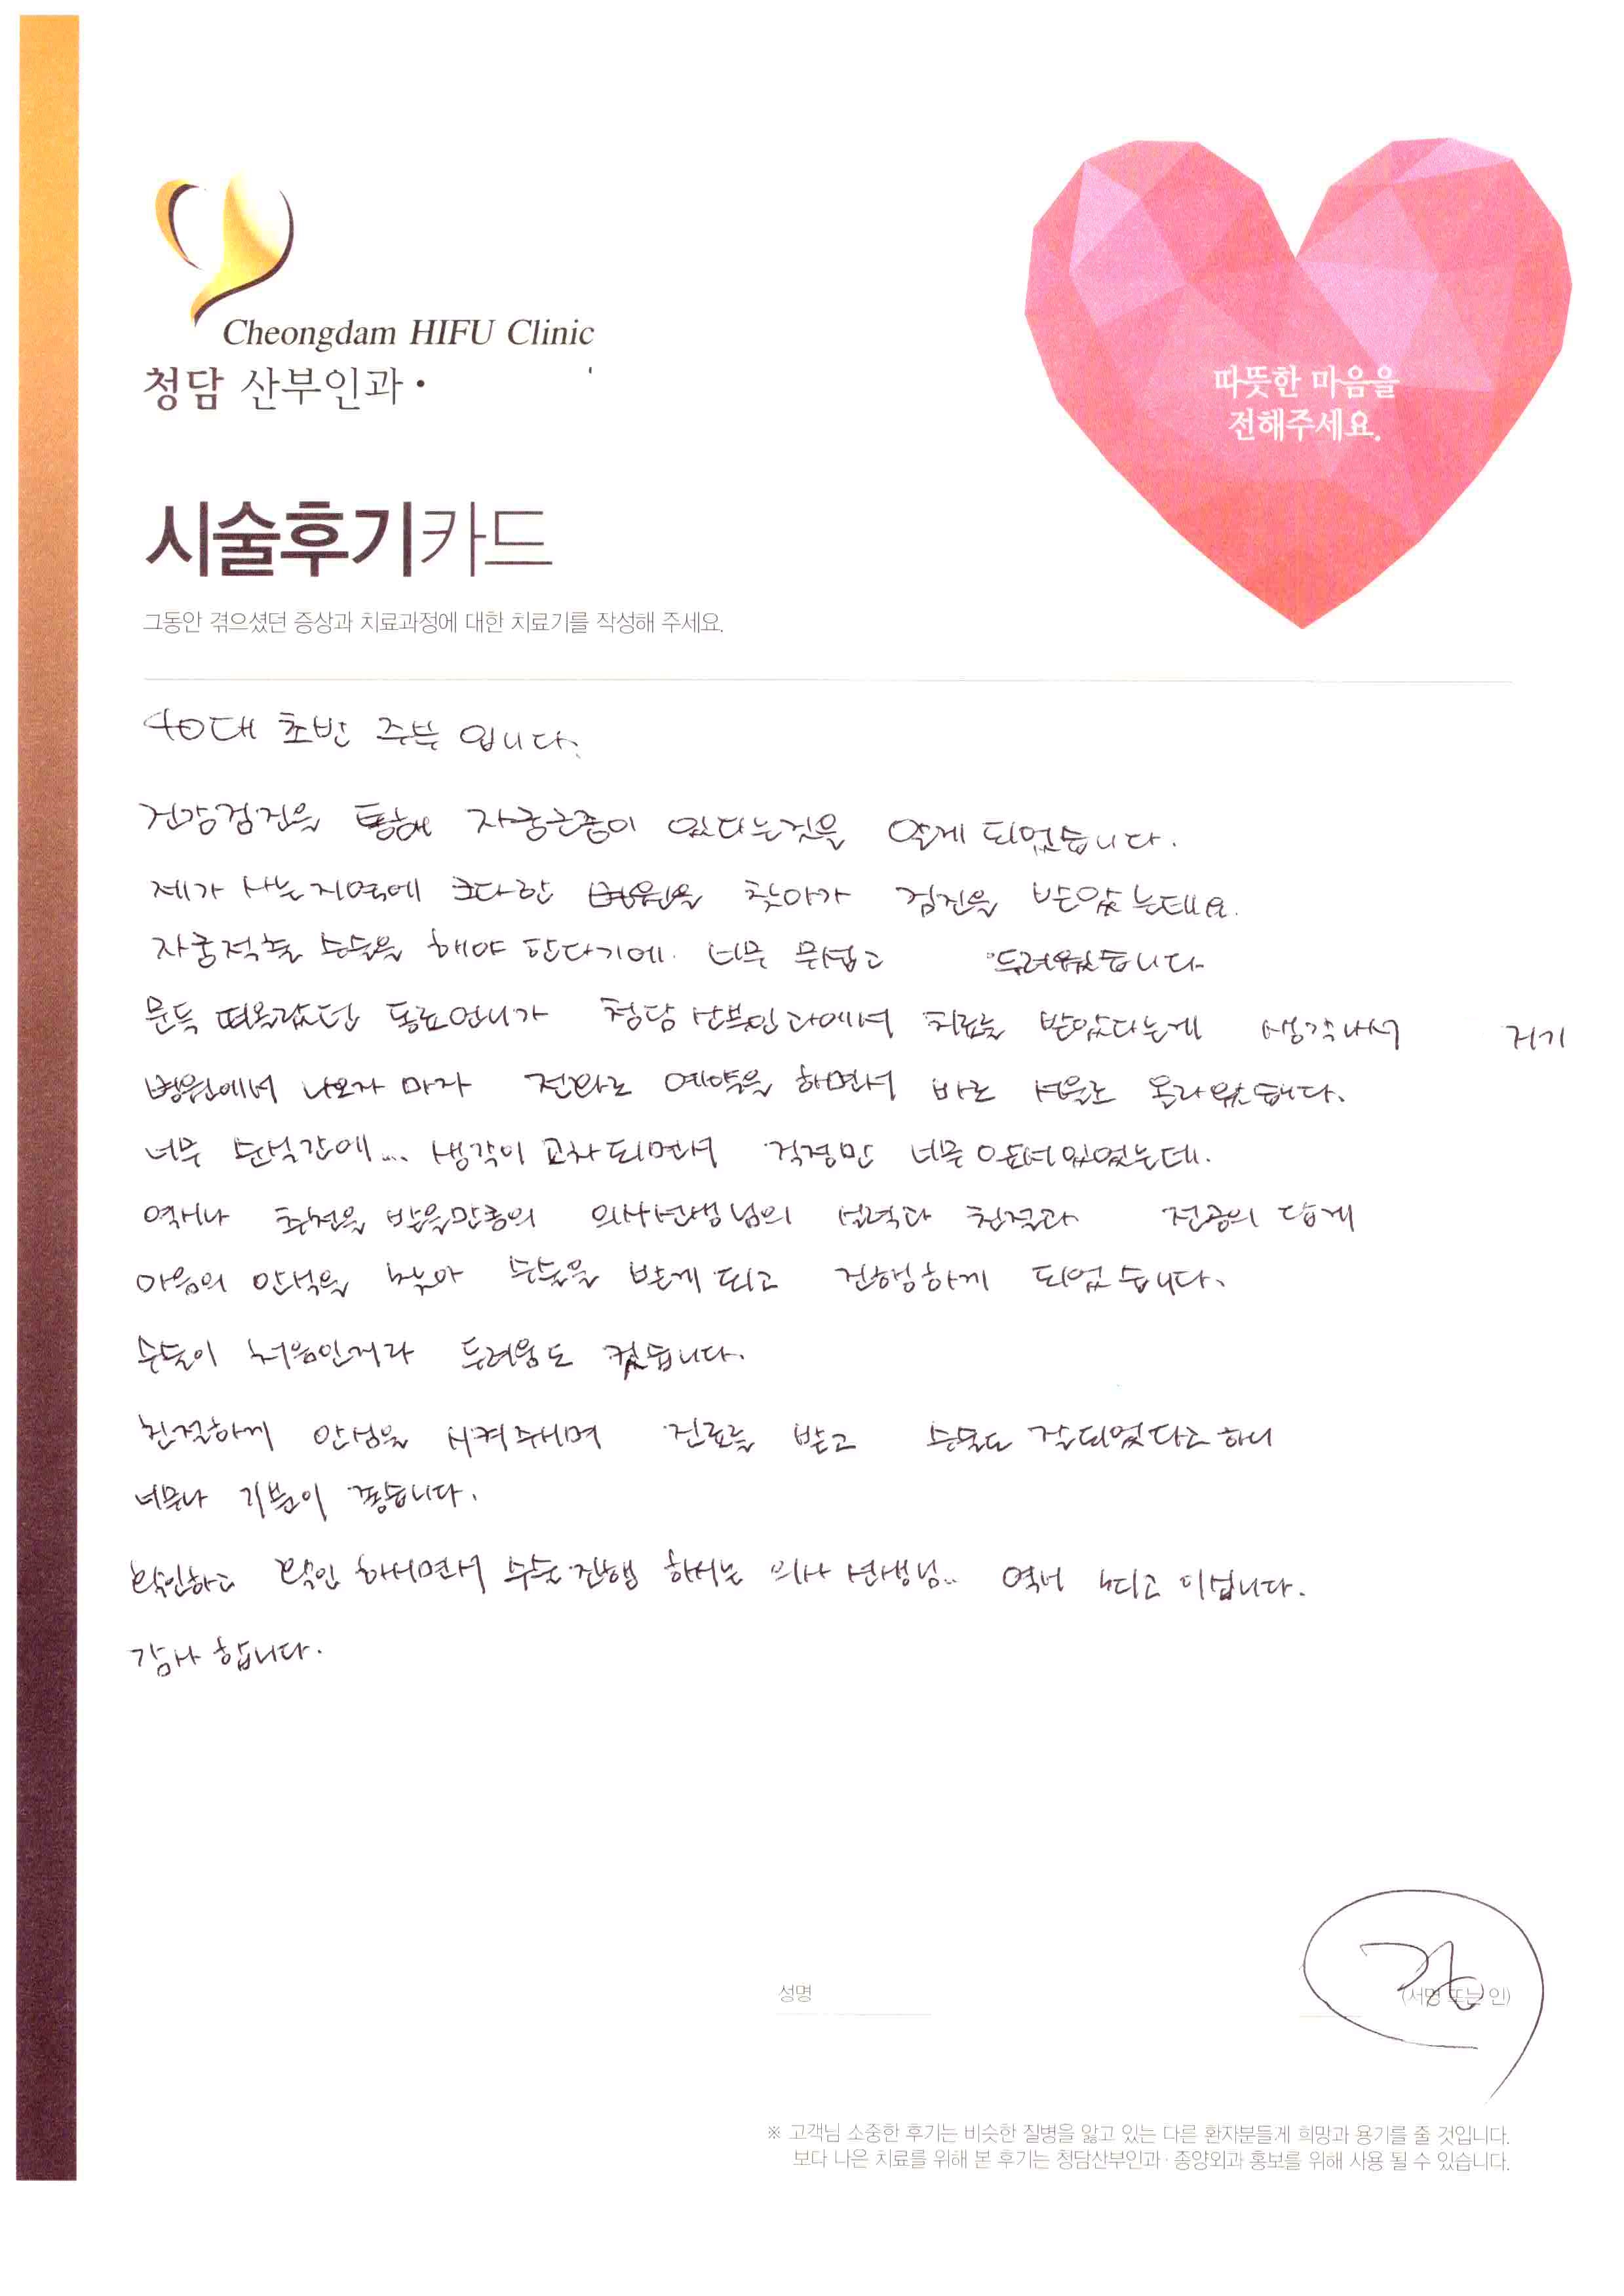 Cheongdam HIFU Clinic
청담 산부인과 •
따뜻한 마음을
전해주세요.
시술후기카드
그동안 겪으셨던 증상과 치료과정에 대한 치료기를 작성해 주세요.
40대 초반 주부 입니다.
건강검진을 통해 자궁근종이 있다는것을 알게 되었습니다.
제가 사는지역에 크다한 병원을 찾아가 검진을 받았는데요.
자궁적출 수술을 해야 한다기에. 너무 무섭고 두려웠습니다
문득 떠올랐던 동료언니가 청담산부인과에서 치료를 받았다는게 생각나서 거기
병원에서 나오자 마자 전화로 예약을 하면서 바로 서울로 올라왔습니다.
너무 순식간에... 생각이 교차되면서 걱정만 너무 있었는데.
역시나 추천을 받을만큼의 의사선생님의 실력과 친절과 전공의 답게
마음의 안식을 찾아 수술을 받게 되고 진행하게 되었습니다.
수술이 처음인거라 두려움도 컸습니다.
친절하게 안심을 시켜주시며 진료를 받고 수술도 잘되었다고 하니
너무나 기분이 좋습니다.
확인하고 확인 하시면서 수술진행 하시는 의사 선생님.. 역시 최고 이십니다.
감사 합니다.
성명
(서명 또는 인)
※ 고객님 소중한 후기는 비슷한 질병을 앓고 있는 다른 환자분들게 희망과 용기를 줄 것입니다.
보다 나은 치료를 위해 본 후기는 청담산부인과·종양외과 홍보를 위해 사용 될 수 있습니다.